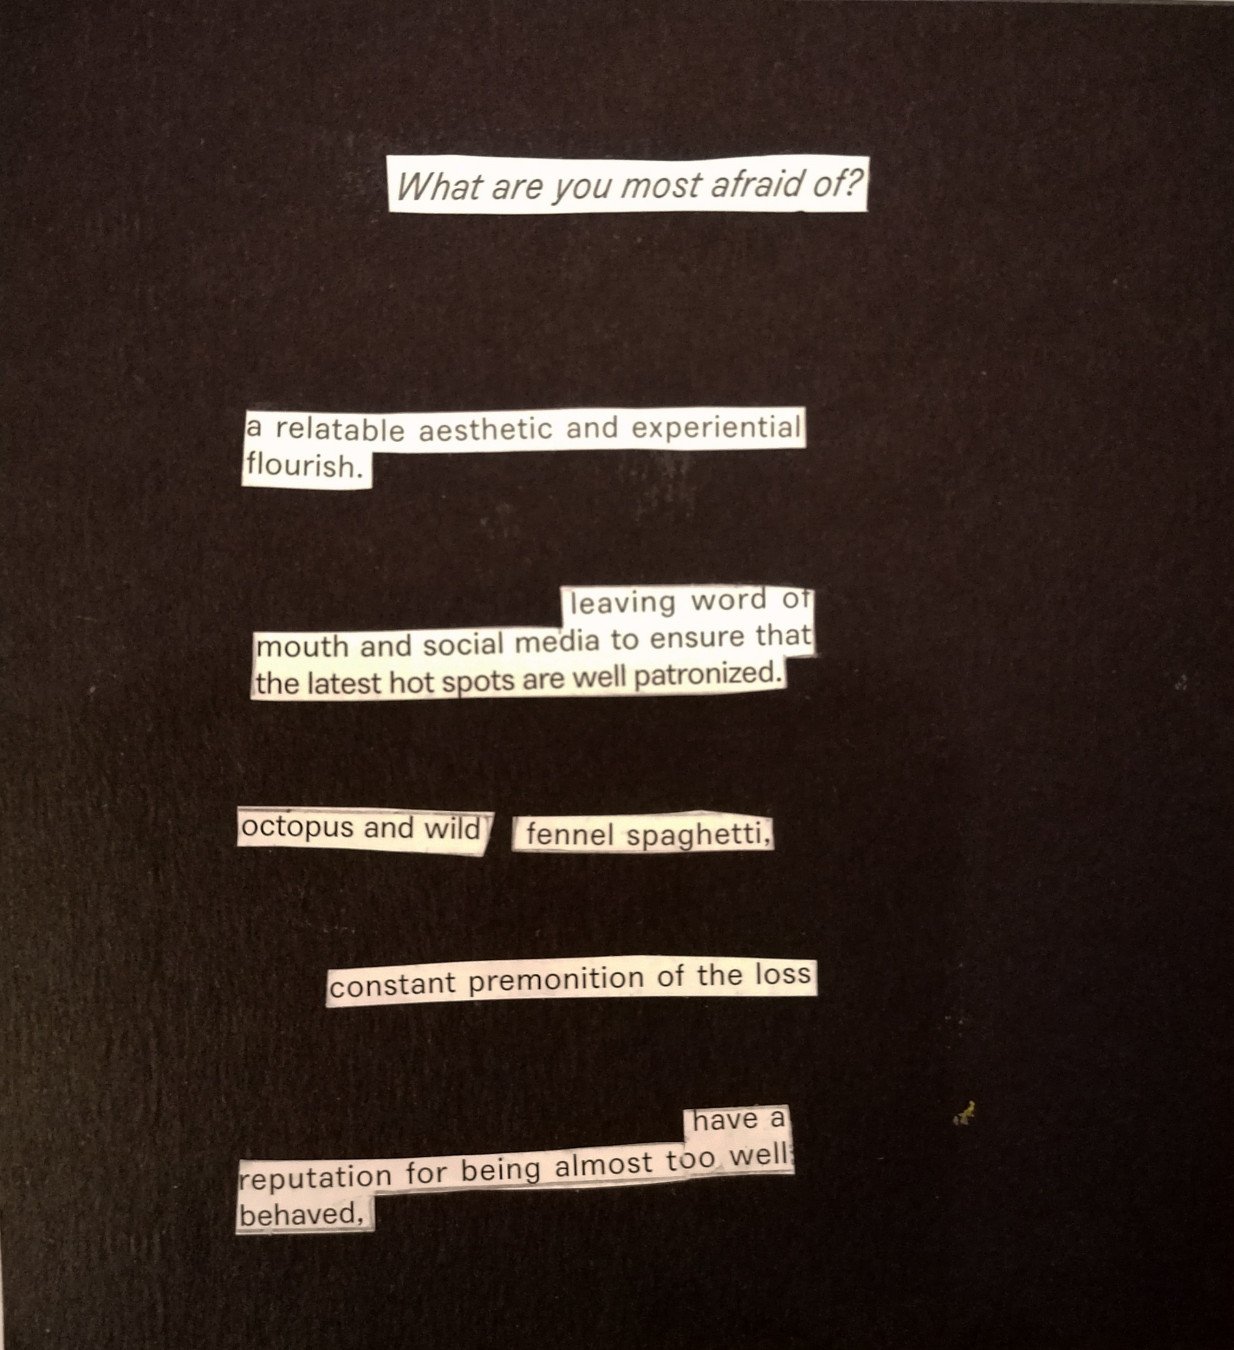 What are you most afraid of?
a relatable aesthetic and experiential
flourish.
leaving word of
mouth and social media to ensure that
the latest hot spots are well patronized.
octopus and wild fennel spaghetti,
constant premonition of the loss
have a
reputation for being almost too well
behaved,